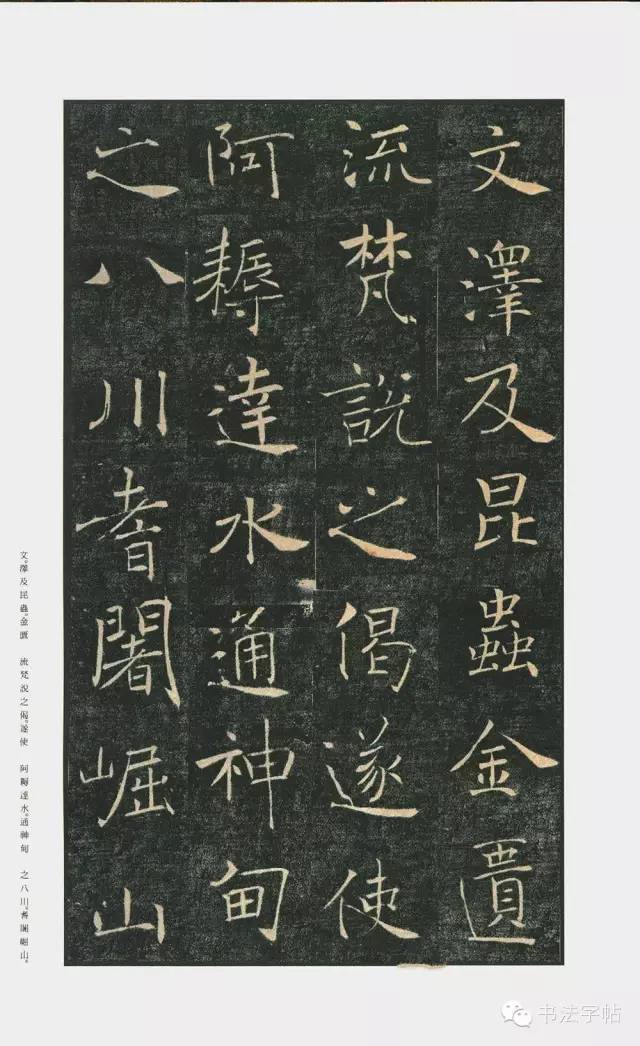 文澤及昆蟲金匱
流梵說之偈遂使
阿耨達水通神甸
之八川耆闍崛山
文。澤及昆蟲。金匱 流梵說之偈。遂使 阿耨達水。通神甸 之八川。耆闍崛山。
书法字帖